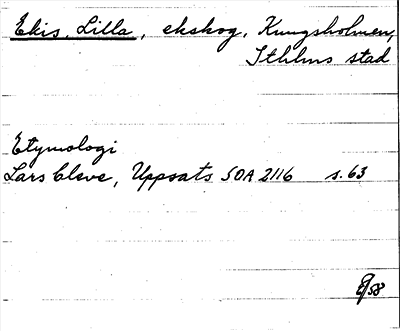 Ekis, Lilla, ekskog, Kungsholmen,
Sthlms stad
Etymologi
Lars Cleve, Uppsats SOA 2116 s. 63
58